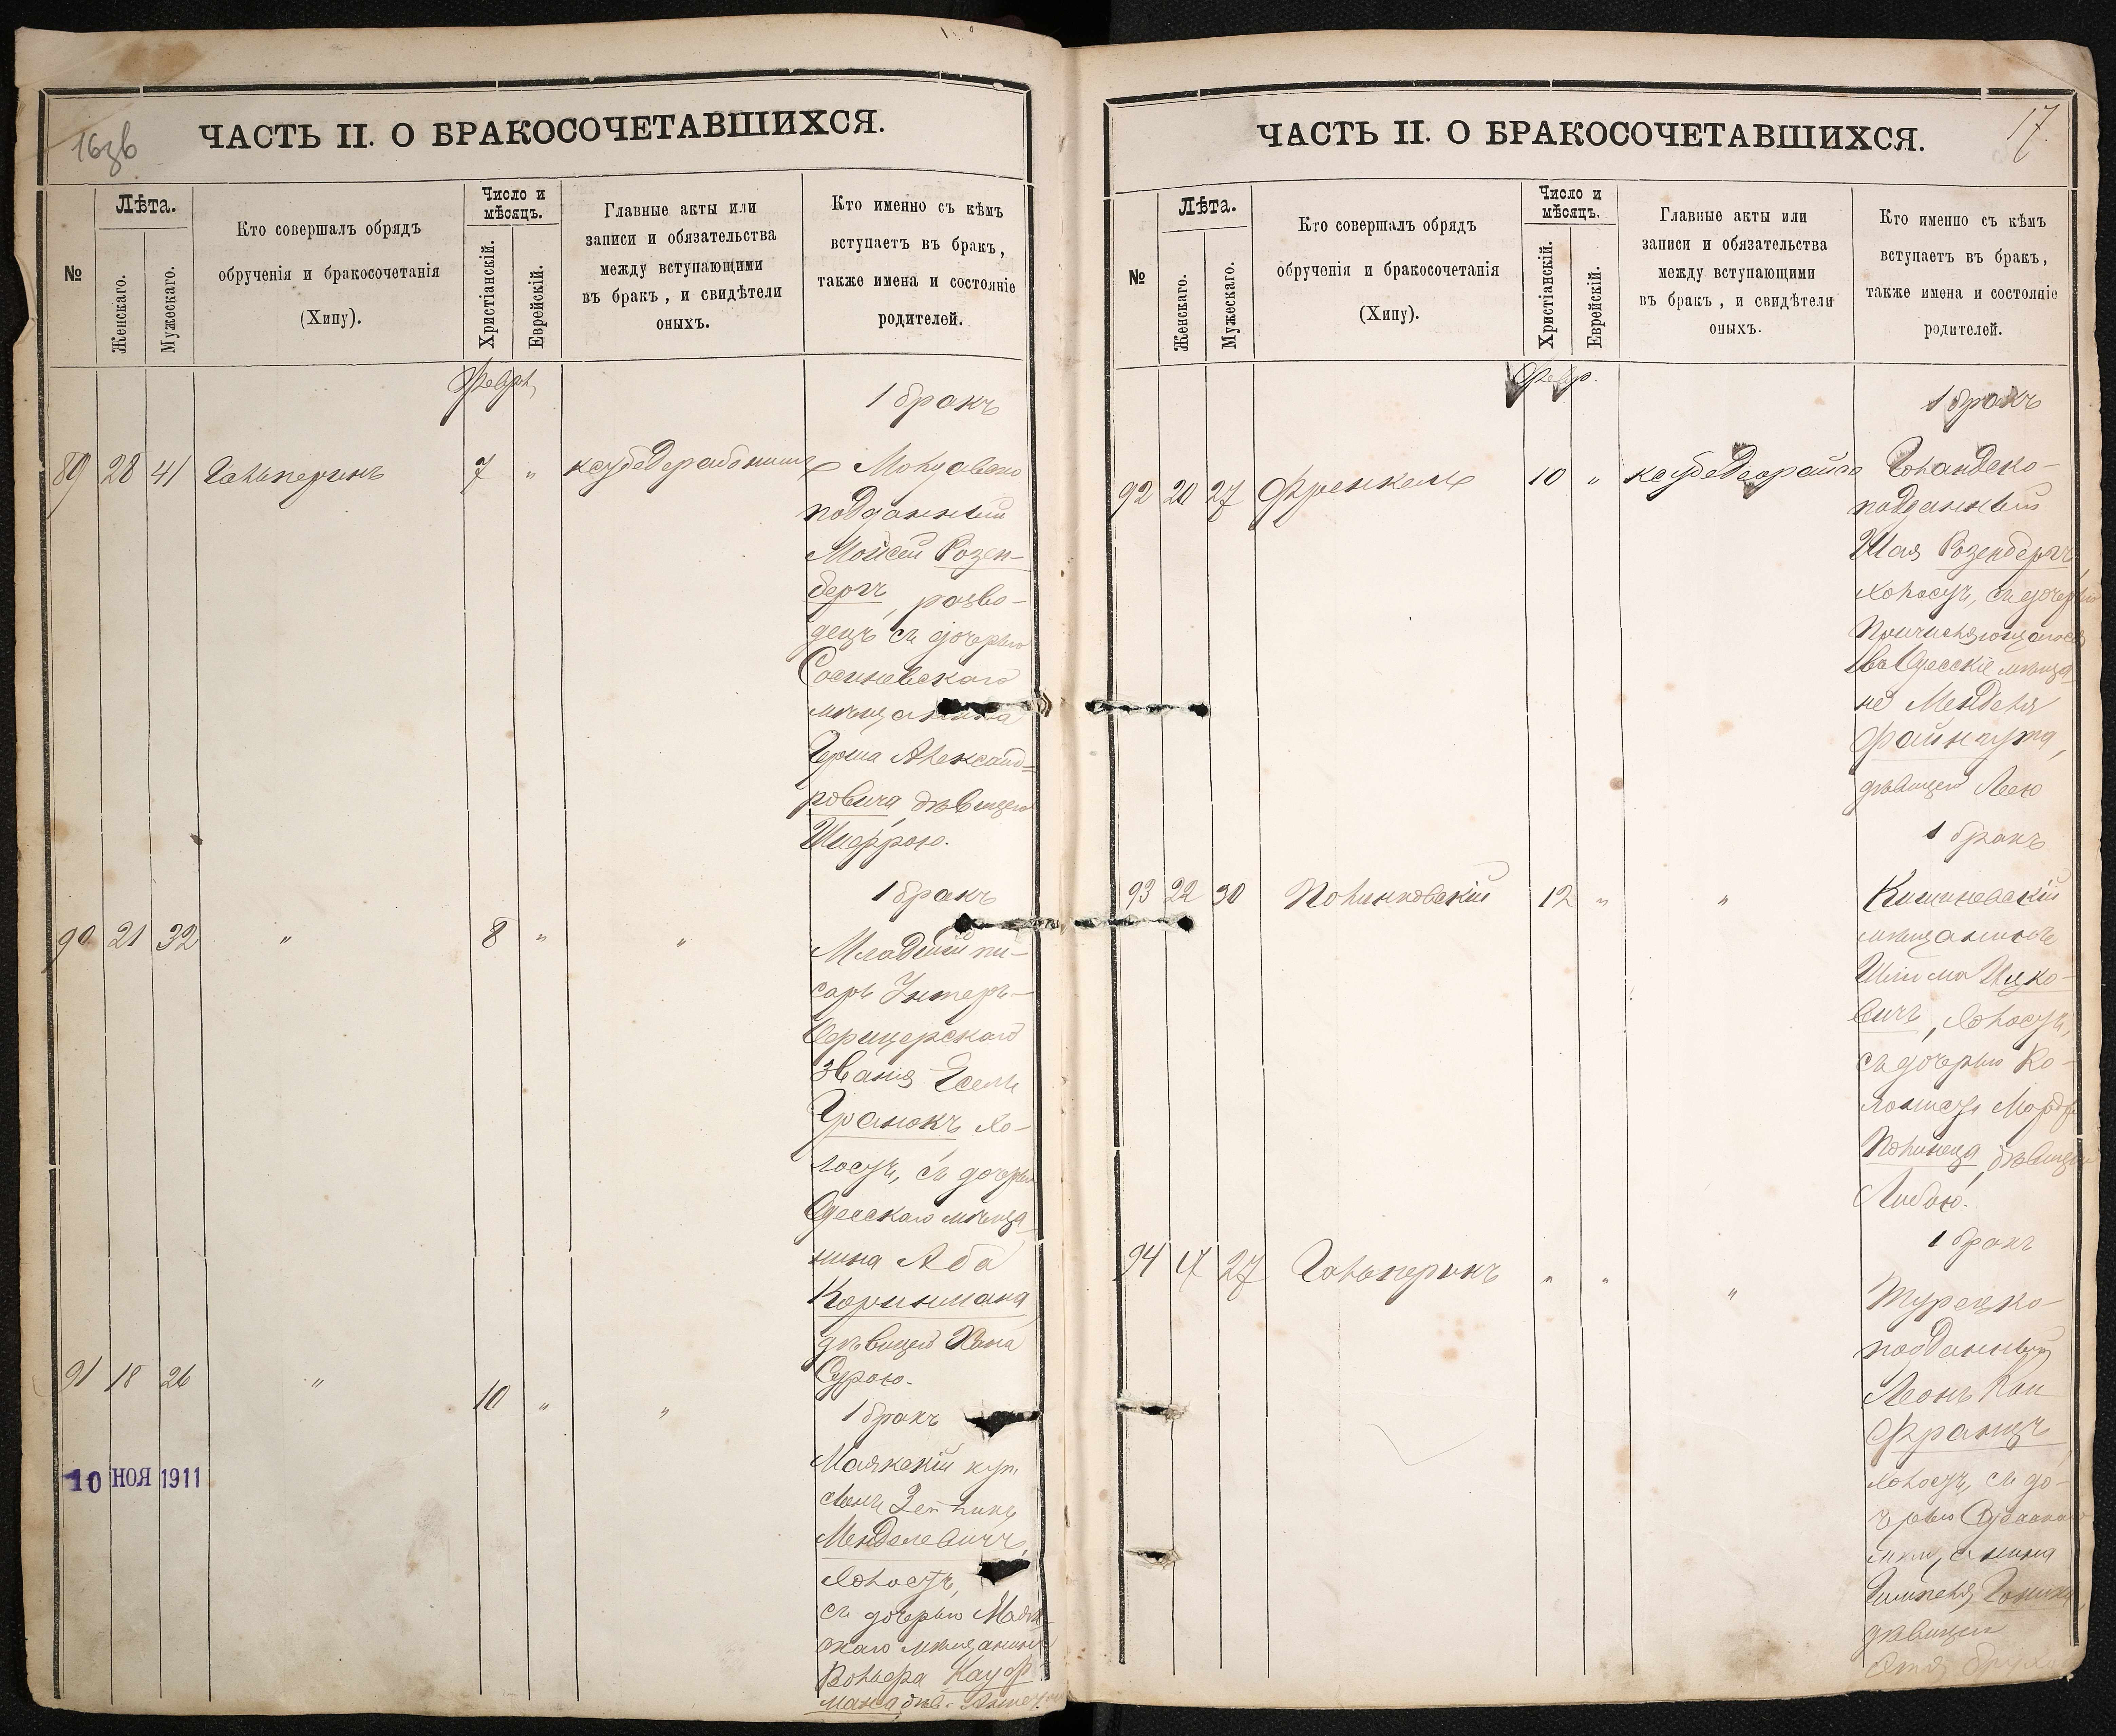 16зв
ЧАСТЬ II. О БРАКОСОЧЕТАВШИХСЯ.
№
Лѣта.
Женскаго.
Мужескаго.
Кто совершалъ обрядъ
обрученія и бракосочетанія
(Хипу).
Число и
мѣсяцъ.
Христіанскій.
Еврейскій.
Главные акты или
записи и обязательства
между вступающими
въ бракъ, и свидѣтели
оныхъ.
Кто именно съ кѣмъ
вступаетъ въ бракъ,
также имена и состояніе
родителей.
1 бракъ
89 28 41 Гальперинъ 7 "
подданный
Мойсей Розен-
бергъ, разво-
децъ съ дочерью
мѣщанина
Герша Александ=
ровича, дѣвицею
Шифрою.
1 бракъ
90 21 32 " 8 " "
Младшій пи-
сарь Унтеръ-
Офицерскаго
званія Іосель
Гранокъ Хо-
лостъ, съ дочерью
Одесскаго мѣща-
нина Аба
Коринмана,
дѣвицею Хана
Сурою.
91 18 26 " 10 " "
1 бракъ
Маякскій куп.
Менделевичъ,
Холостъ,
съ дочерью Маяк-
скаго мѣщанина
Вольфа Кауф-
мана, дѣв.
10 НОЯ 1911
17
ЧАСТЬ II. О БРАКОСОЧЕТАВШИХСЯ.
№
Лѣта.
Женскаго.
Мужескаго.
Кто совершалъ обрядъ
обрученія и бракосочетанія
(Хипу).
Число и
мѣсяцъ.
Христіанскій.
Еврейскій.
Главные акты или
записи и обязательства
между вступающими
въ бракъ, и свидѣтели
оныхъ.
Кто именно съ кѣмъ
вступаетъ въ бракъ,
также имена и состояніе
родителей.
Февр.
1 бракъ
92 20 27 Френкель 10 "
Голандско-
подданный
Шая Розенбергъ,
холостъ, съ дочерью
Причисляющагося
въ Одесскіе мѣща-
не Менделя
дѣвицею Леею
1 бракъ
93 22 30 Полинковскій 12 " "
Кишиневскій
мѣщанинъ
Шлима Ицко-
вичъ, Холостъ,
съ дочерью Ко-
лониста
Полинеца, дѣвицею
Либою.
1 бракъ
94 17 27 Гальперинъ " " "
Турецко-
подданный
Леонъ
Францъ
холостъ, съ до-
черью
дѣвицею